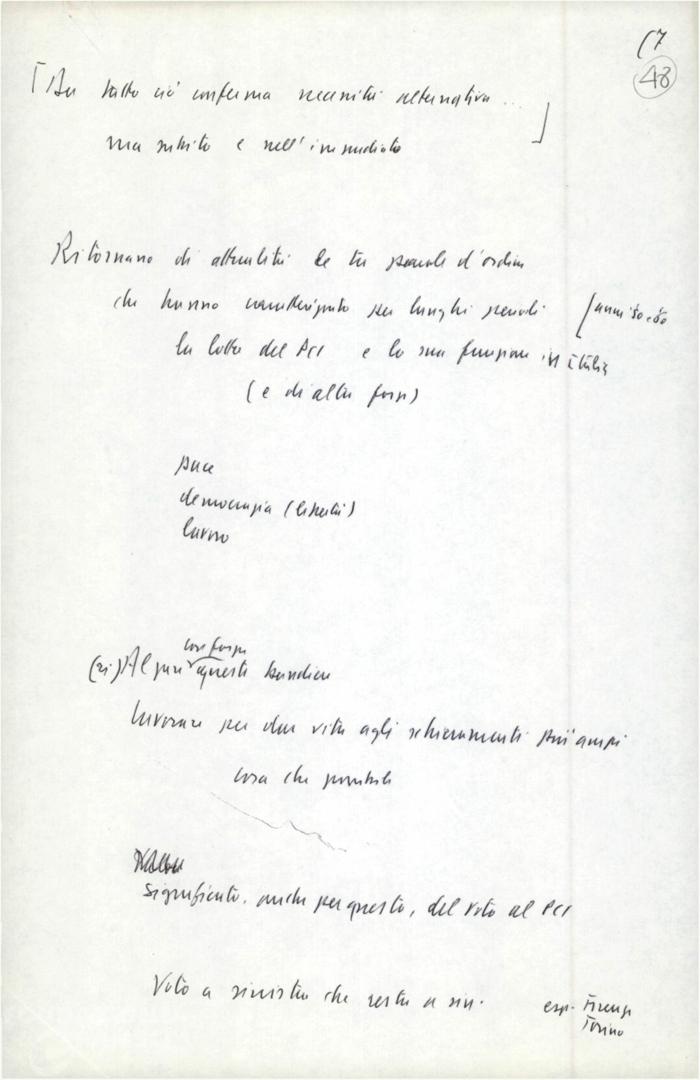 17
48
[Su tutto ciò conferma necessità alternativa...
ma subito e nell'immediato]
Ritornano di attualità le tre parole d'ordine
che hanno caratterizzato per lunghi periodi [anni '50-'60
la lotta del PCI e la sua funzione in Italia
(e di altre forze)
pace
democrazia (libertà)
lavoro
con forza
(ri)Alzare queste bandiere
lavorare per dar vita agli schieramenti più ampi
cosa che possibile
Significato, anche per questo, del voto al PCI
Voto a sinistra che resta a sin. esp. Firenze
Torino